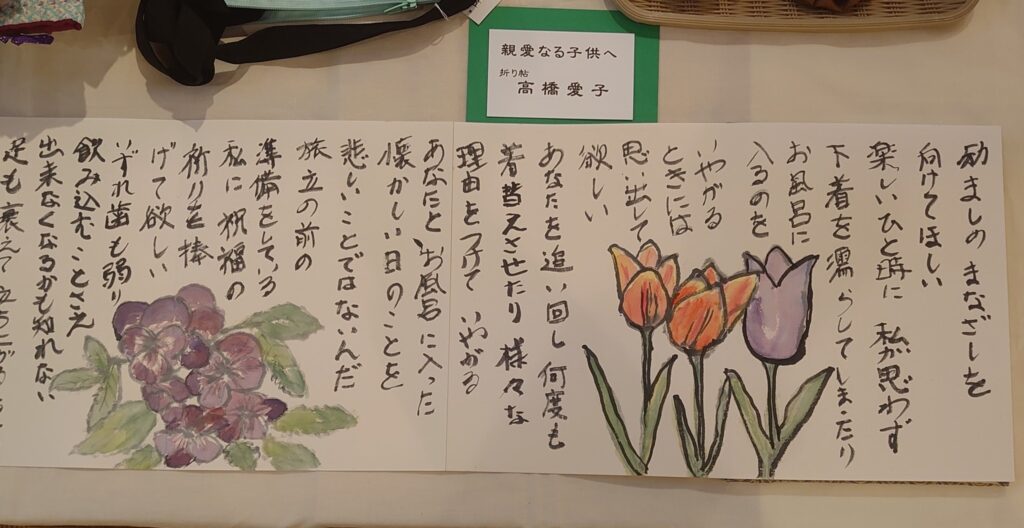 親愛なる子供へ
折り帖
高橋愛子
励ましの まなざしを
向けてほしい
楽しいひと時に 私が思わず
下着を濡らしてしまったり
お風呂に
入るのを
いやがる
ときには
思い出して
欲しい
あなたを追い回し 何度も
着替えさせたり 様々な
理由をつけて いやがる
あなたと お風呂に入った
懐かしい日のことを
悲しいことではないんだ
旅立の前の
準備をしている
私に 祝福の
祈りを捧
げて欲しい
いずれ歯も弱り
飲み込むことさえ
出来なくなるかも知れない
足も衰えて立ち上がる